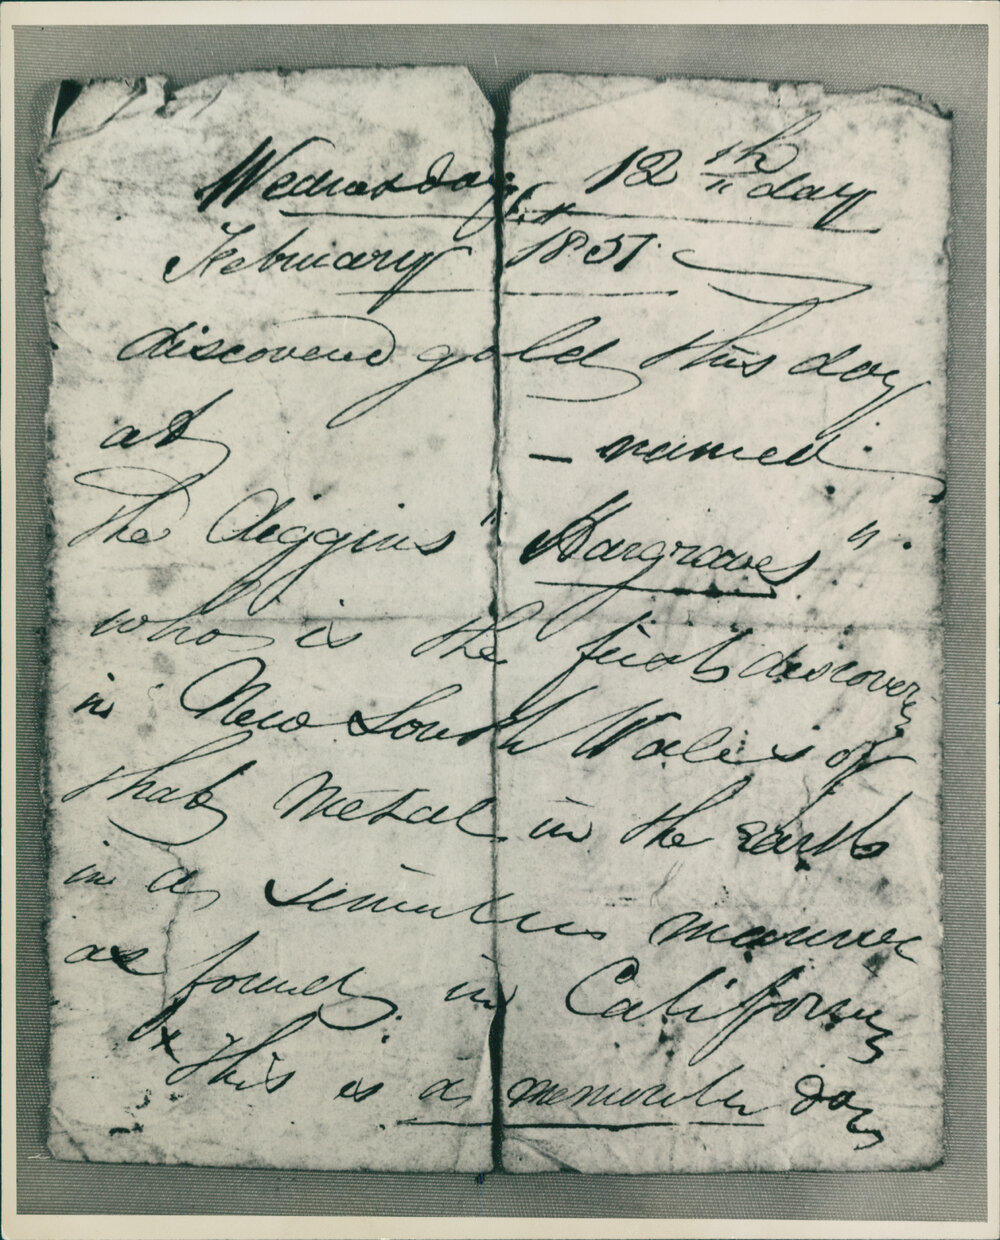 Wednesday 12th day
February 1851
discovered gold this day
at — named
the Diggins "Hargraves".
who is the first discoverer
in New South Wales of
that metal in the earth
in a similar manner
as found in California
x This is a memorable day